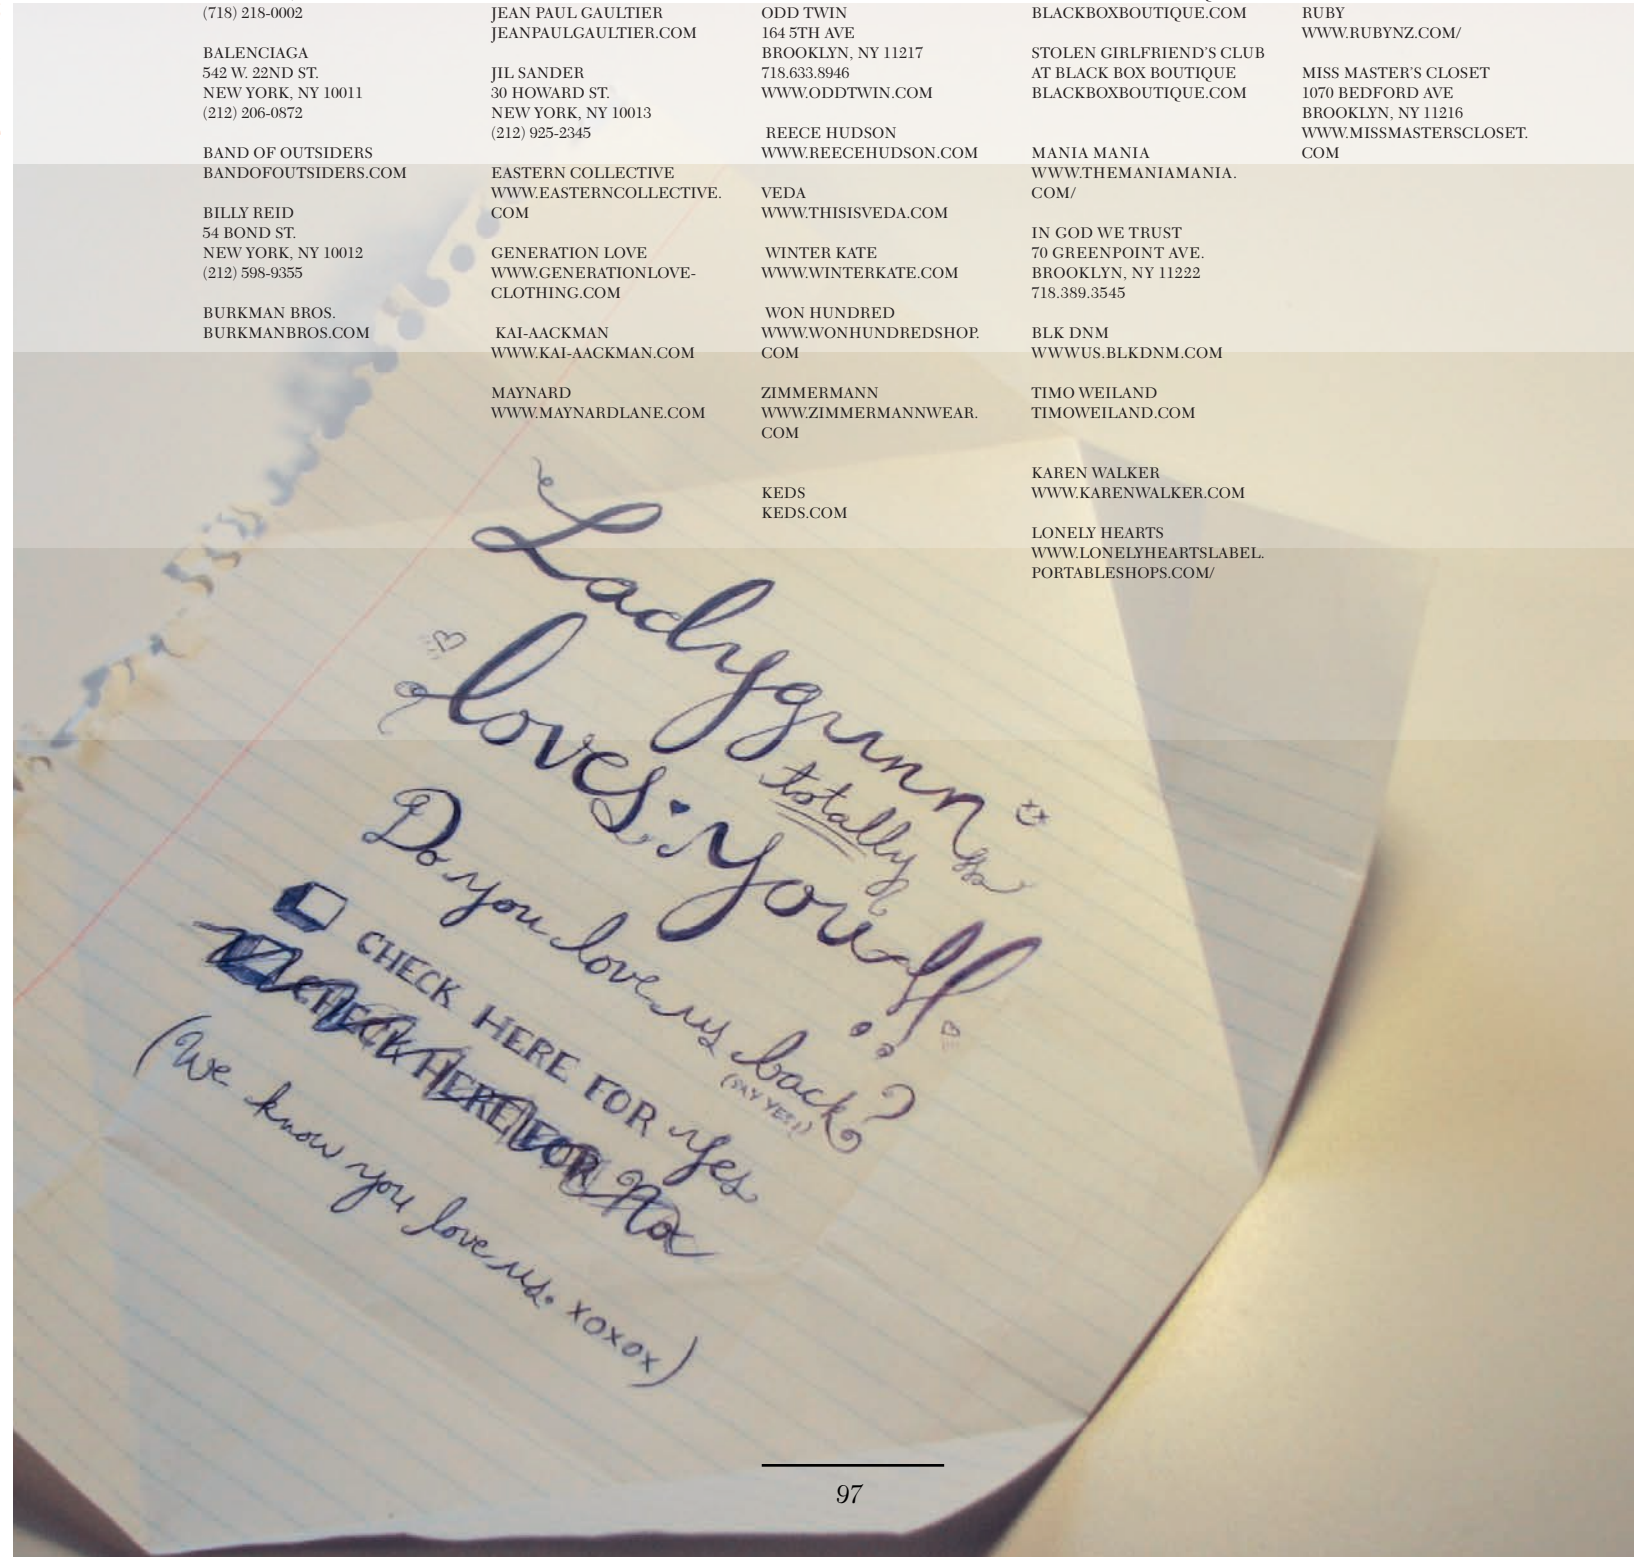 (718) 218-0002
BALENCIAGA
542 W. 22ND ST.
NEW YORK, NY 10011
(212) 206-0872
BAND OF OUTSIDERS
BANDOFOUTSIDERS.COM
BILLY REID
54 BOND ST.
NEW YORK, NY 10012
(212) 598-9355
BURKMAN BROS.
BURKMANBROS.COM
JEAN PAUL GAULTIER
JEANPAULGAULTIER.COM
JIL SANDER
30 HOWARD ST.
NEW YORK, NY 10013
(212) 925-2345
EASTERN COLLECTIVE
WWW.EASTERNCOLLECTIVE.
COM
GENERATION LOVE
WWW.GENERATIONLOVE-
CLOTHING.COM
KAI-AACKMAN
WWW.KAI-AACKMAN.COM
MAYNARD
WWW.MAYNARDLANE.COM
ODD TWIN
164 5TH AVE
BROOKLYN, NY 11217
718.633.8946
WWW.ODDTWIN.COM
REECE HUDSON
WWW.REECEHUDSON.COM
VEDA
WWW.THISISVEDA.COM
WINTER KATE
WWW.WINTERKATE.COM
WON HUNDRED
WWW.WONHUNDREDSHOP.
COM
ZIMMERMANN
WWW.ZIMMERMANNWEAR.
COM
KEDS
KEDS.COM
BLACKBOXBOUTIQUE.COM
STOLEN GIRLFRIEND'S CLUB
AT BLACK BOX BOUTIQUE
BLACKBOXBOUTIQUE.COM
MANIA MANIA
WWW.THEMANIAMANIA.
COM/
IN GOD WE TRUST
70 GREENPOINT AVE.
BROOKLYN, NY 11222
718.389.3545
BLK DNM
WWWUS.BLKDNM.COM
TIMO WEILAND
TIMOWEILAND.COM
KAREN WALKER
WWW.KARENWALKER.COM
LONELY HEARTS
WWW.LONELYHEARTSLABEL.
PORTABLESHOPS.COM/
RUBY
WWW.RUBYNZ.COM/
MISS MASTER'S CLOSET
1070 BEDFORD AVE
BROOKLYN, NY 11216
WWW.MISSMASTERSCLOSET.
COM
Ladygunn
totally
loves you!!
Do you love us back?
(SAY YES!)
CHECK HERE FOR yes
CHECK HERE FOR No
(We know you love us. xoxox)
97